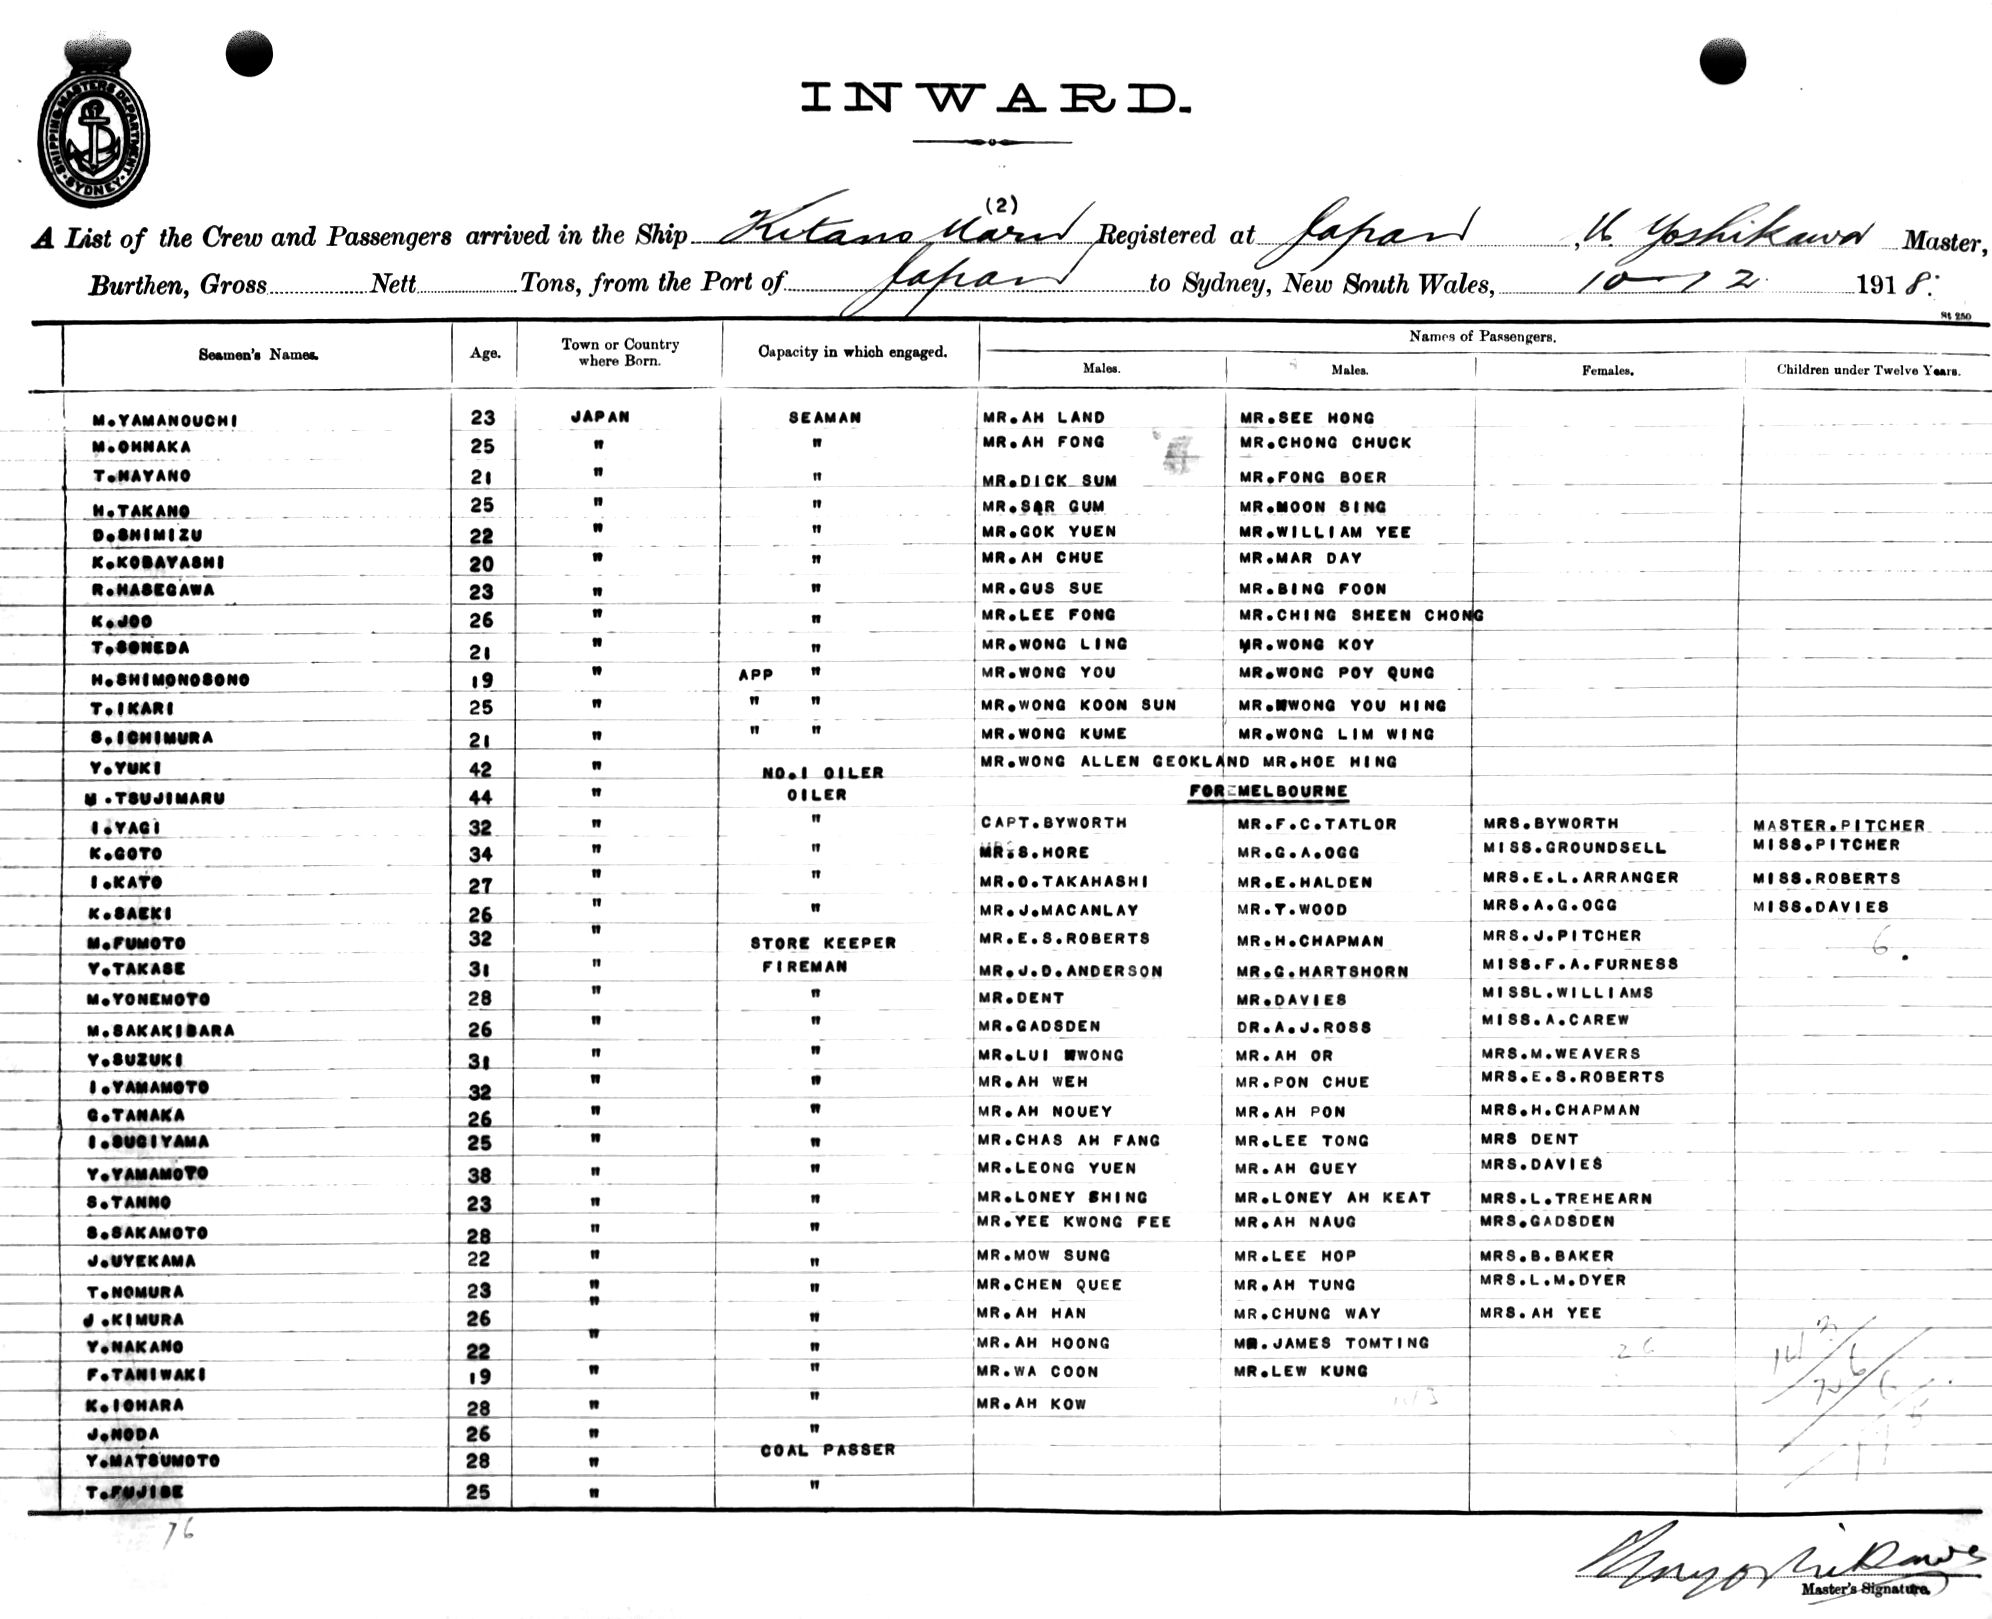 SHIPPING MASTERS DEPARTMENT. SYDNEY
INWARD.
(2)
A List of the Crew and Passengers arrived in the Ship Kitano Maru Registered at Japan, Yoshikawa Master,
Burthen, Gross Nett Tons, from the Port of Japan to Sydney, New South Wales, 10 - 12 1918.
St 250
Seamen's Names. Age. Town or Country where Born. Capacity in which engaged. Names of Passengers.
Males. Males. Females. Children under Twelve Years.
M.YAMANOUCHI 23 JAPAN SEAMAN MR.AH LAND MR.SEE HONG
M.OHNAKA 25 " " MR.AH FONG MR.CHONG CHUCK
T.HAYANO 21 " " MR.DICK SUM MR.FONG BOER
H.TAKANO 25 " " MR.SAR GUM MR.MOON SING
D.SHIMIZU 22 " " MR.GOK YUEN MR.WILLIAM YEE
K.KOBAYASHI 20 " " MR.AH CHUE MR.MAR DAY
R.HASEGAWA 23 " " MR.GUS SUE MR.BING FOON
K.JOO 26 " " MR.LEE FONG MR.CHING SHEEN CHONG
T.SONEDA 21 " " MR.WONG LING MR.WONG KOY
H.SHIMONOSONO 19 " APP " MR.WONG YOU MR.WONG POY QUNG
T.IKARI 25 " " " MR.WONG KOON SUN MR.WONG YOU HING
S.ICHIMURA 21 " " " MR.WONG KUME MR.WONG LIM WING
Y.YUKI 42 " NO.1 OILER MR.WONG ALLEN GEOKLAND MR.HOE HING
M.TSUJIMARU 44 " OILER FOR MELBOURNE
I.YAGI 32 " " CAPT.BYWORTH MR.F.C.TATLOR MRS.BYWORTH MASTER.PITCHER
K.GOTO 34 " " MR.S.HORE MR.G.A.OGG MISS.GROUNDSELL MISS.PITCHER
I.KATO 27 " " MR.O.TAKAHASHI MR.E.HALDEN MRS.E.L.ARRANGER MISS.ROBERTS
K.SAEKI 26 " " MR.J.MACANLAY MR.T.WOOD MRS.A.G.OGG MISS.DAVIES
M.FUMOTO 32 " STORE KEEPER MR.E.S.ROBERTS MR.H.CHAPMAN MRS.J.PITCHER 6.
Y.TAKASE 31 " FIREMAN MR.J.D.ANDERSON MR.G.HARTSHORN MISS.F.A.FURNESS
M.YONEMOTO 28 " " MR.DENT MR.DAVIES MISSL.WILLIAMS
M.SAKAKIBARA 26 " " MR.GADSDEN DR.A.J.ROSS MISS.A.CAREW
Y.SUZUKI 31 " " MR.LUI WONG MR.AH OR MRS.M.WEAVERS
I.YAMAMOTO 32 " " MR.AH WEH MR.PON CHUE MRS.E.S.ROBERTS
G.TANAKA 26 " " MR.AH NOUEY MR.AH PON MRS.H.CHAPMAN
I.SUGIYAMA 25 " " MR.CHAS AH FANG MR.LEE TONG MRS DENT
Y.YAMAMOTO 38 " " MR.LEONG YUEN MR.AH GUEY MRS.DAVIES
S.TANNO 23 " " MR.LONEY SHING MR.LONEY AH KEAT MRS.L.TREHEARN
S.SAKAMOTO 28 " " MR.YEE KWONG FEE MR.AH NAUG MRS.GADSDEN
J.UYEKAMA 22 " " MR.MOW SUNG MR.LEE HOP MRS.B.BAKER
T.NOMURA 23 " " MR.CHEN QUEE MR.AH TUNG MRS.L.M.DYER
J.KIMURA 26 " " MR.AH HAN MR.CHUNG WAY MRS.AH YEE
Y.NAKANO 22 " " MR.AH HOONG MR.JAMES TOMTING 26
F.TANIWAKI 19 " " MR.WA COON MR.LEW KUNG
K.IOHARA 28 " " MR.AH KOW
J.NODA 26 " "
Y.MATSUMOTO 28 " COAL PASSER
T.FUJISE 25 " "
76
Master's Signature.